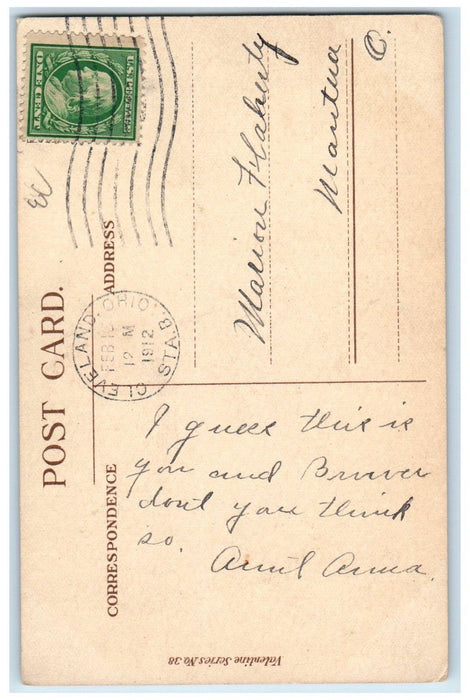 U.S. POSTAGE
ONE CENT
EC
CLEVELAND, OHIO.
STA. B.
FEB
12 M
1912
POST CARD.
ADDRESS
CORRESPONDENCE
Marion Flaherty
Mantua
O.
I guess this is
you and
dont you think
so.
Aunt Anna.
Valentine Series No. 38